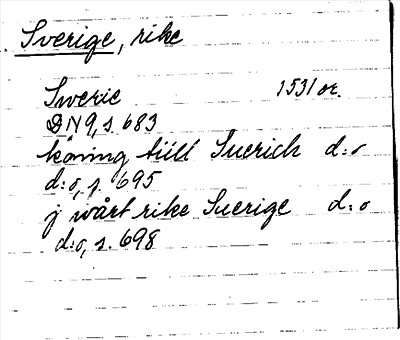 Sverige, rike
Swerie 1531 or.
DN 9, s. 683
koning till Suerich d:o
d:o, s. 695
j wårt rike Suerige d:o
d:o, s. 698